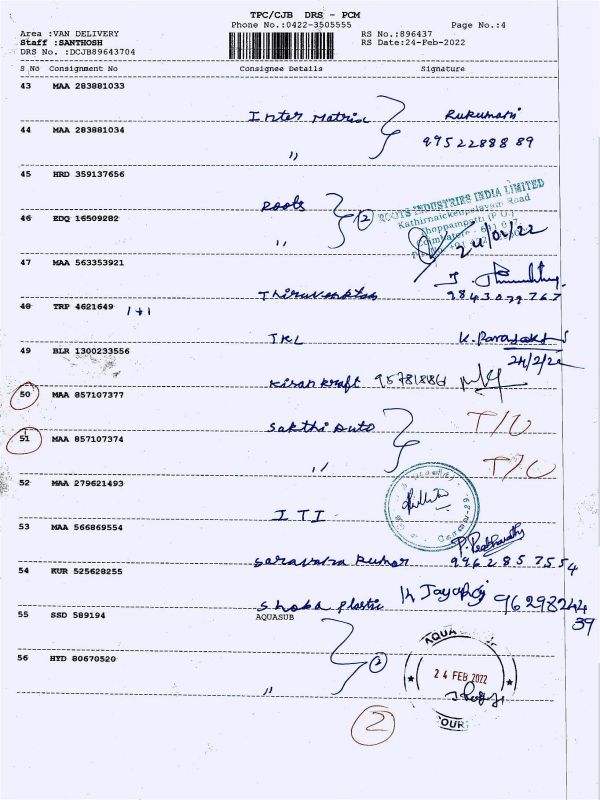 TPC/CJB DRS - PCM
Phone No.:0422-3505555
Page No.:4
Area :VAN DELIVERY
RS No.:896437
Staff :SANTHOSH
RS Date:24-Feb-2022
DRS No. :DCJB89643704
S No Consignment No Consignee Details Signature
43 MAA 283881033
Inter Matrix Rukumani
44 MAA 283881034
9952288889
"
45 HRD 359137656
Roots 2 ROOTS INDUSTRIES INDIA LIMITED
Kathirnaickenpalayam Road
Thoppampatti (P.O.)
46 EDQ 16509282
Coimbatore - 641 017
" 24/02/22
47 MAA 563353921
9843079767
48 TRP 4621649 1+1
TKL
24/2/22
49 BLR 1300233556
Kiran Kraft
50 MAA 857107377
Sakthi Auto T/U
51 MAA 857107374
" T/U
52 MAA 279621493
ITI
53 MAA 566869554
Saravana Kumar 9962857554
54 KUR 525628255
Shoba Plastic
55 SSD 589194 AQUASUB
9629824439
AQUA
56 HYD 80670520
2
24 FEB 2022
"
OUR
2